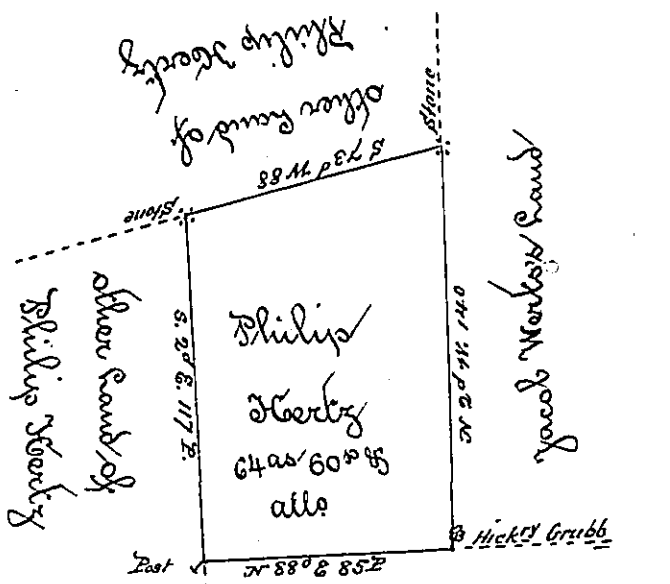 other Land of
Philip Hertz
Stone
S 73d W 88
Stone
other Land of
Philip Hertz
S. 2d E. 117 P.
Philip
Hertz
64 as 60 ps &
allo
N 2d W 140
Jacob Wertz's Land
Post
N 88d E 85P
Hickry Grubb